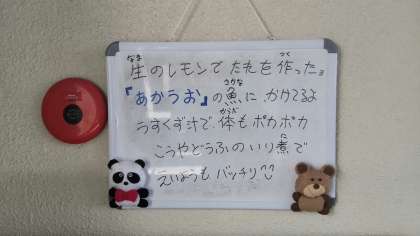 生のレモンでたれを作ったョ
『あかうお』の魚に、かけてるよ
うすくず汁で、体もポカポカ
こうやどうふのいり煮で
えいようも バッチリ